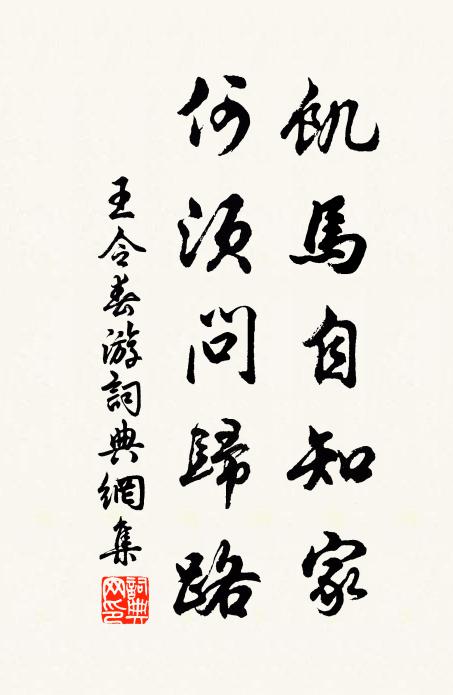 飢馬自知家
何須問歸路
王令春游詞典網集
詞典網印